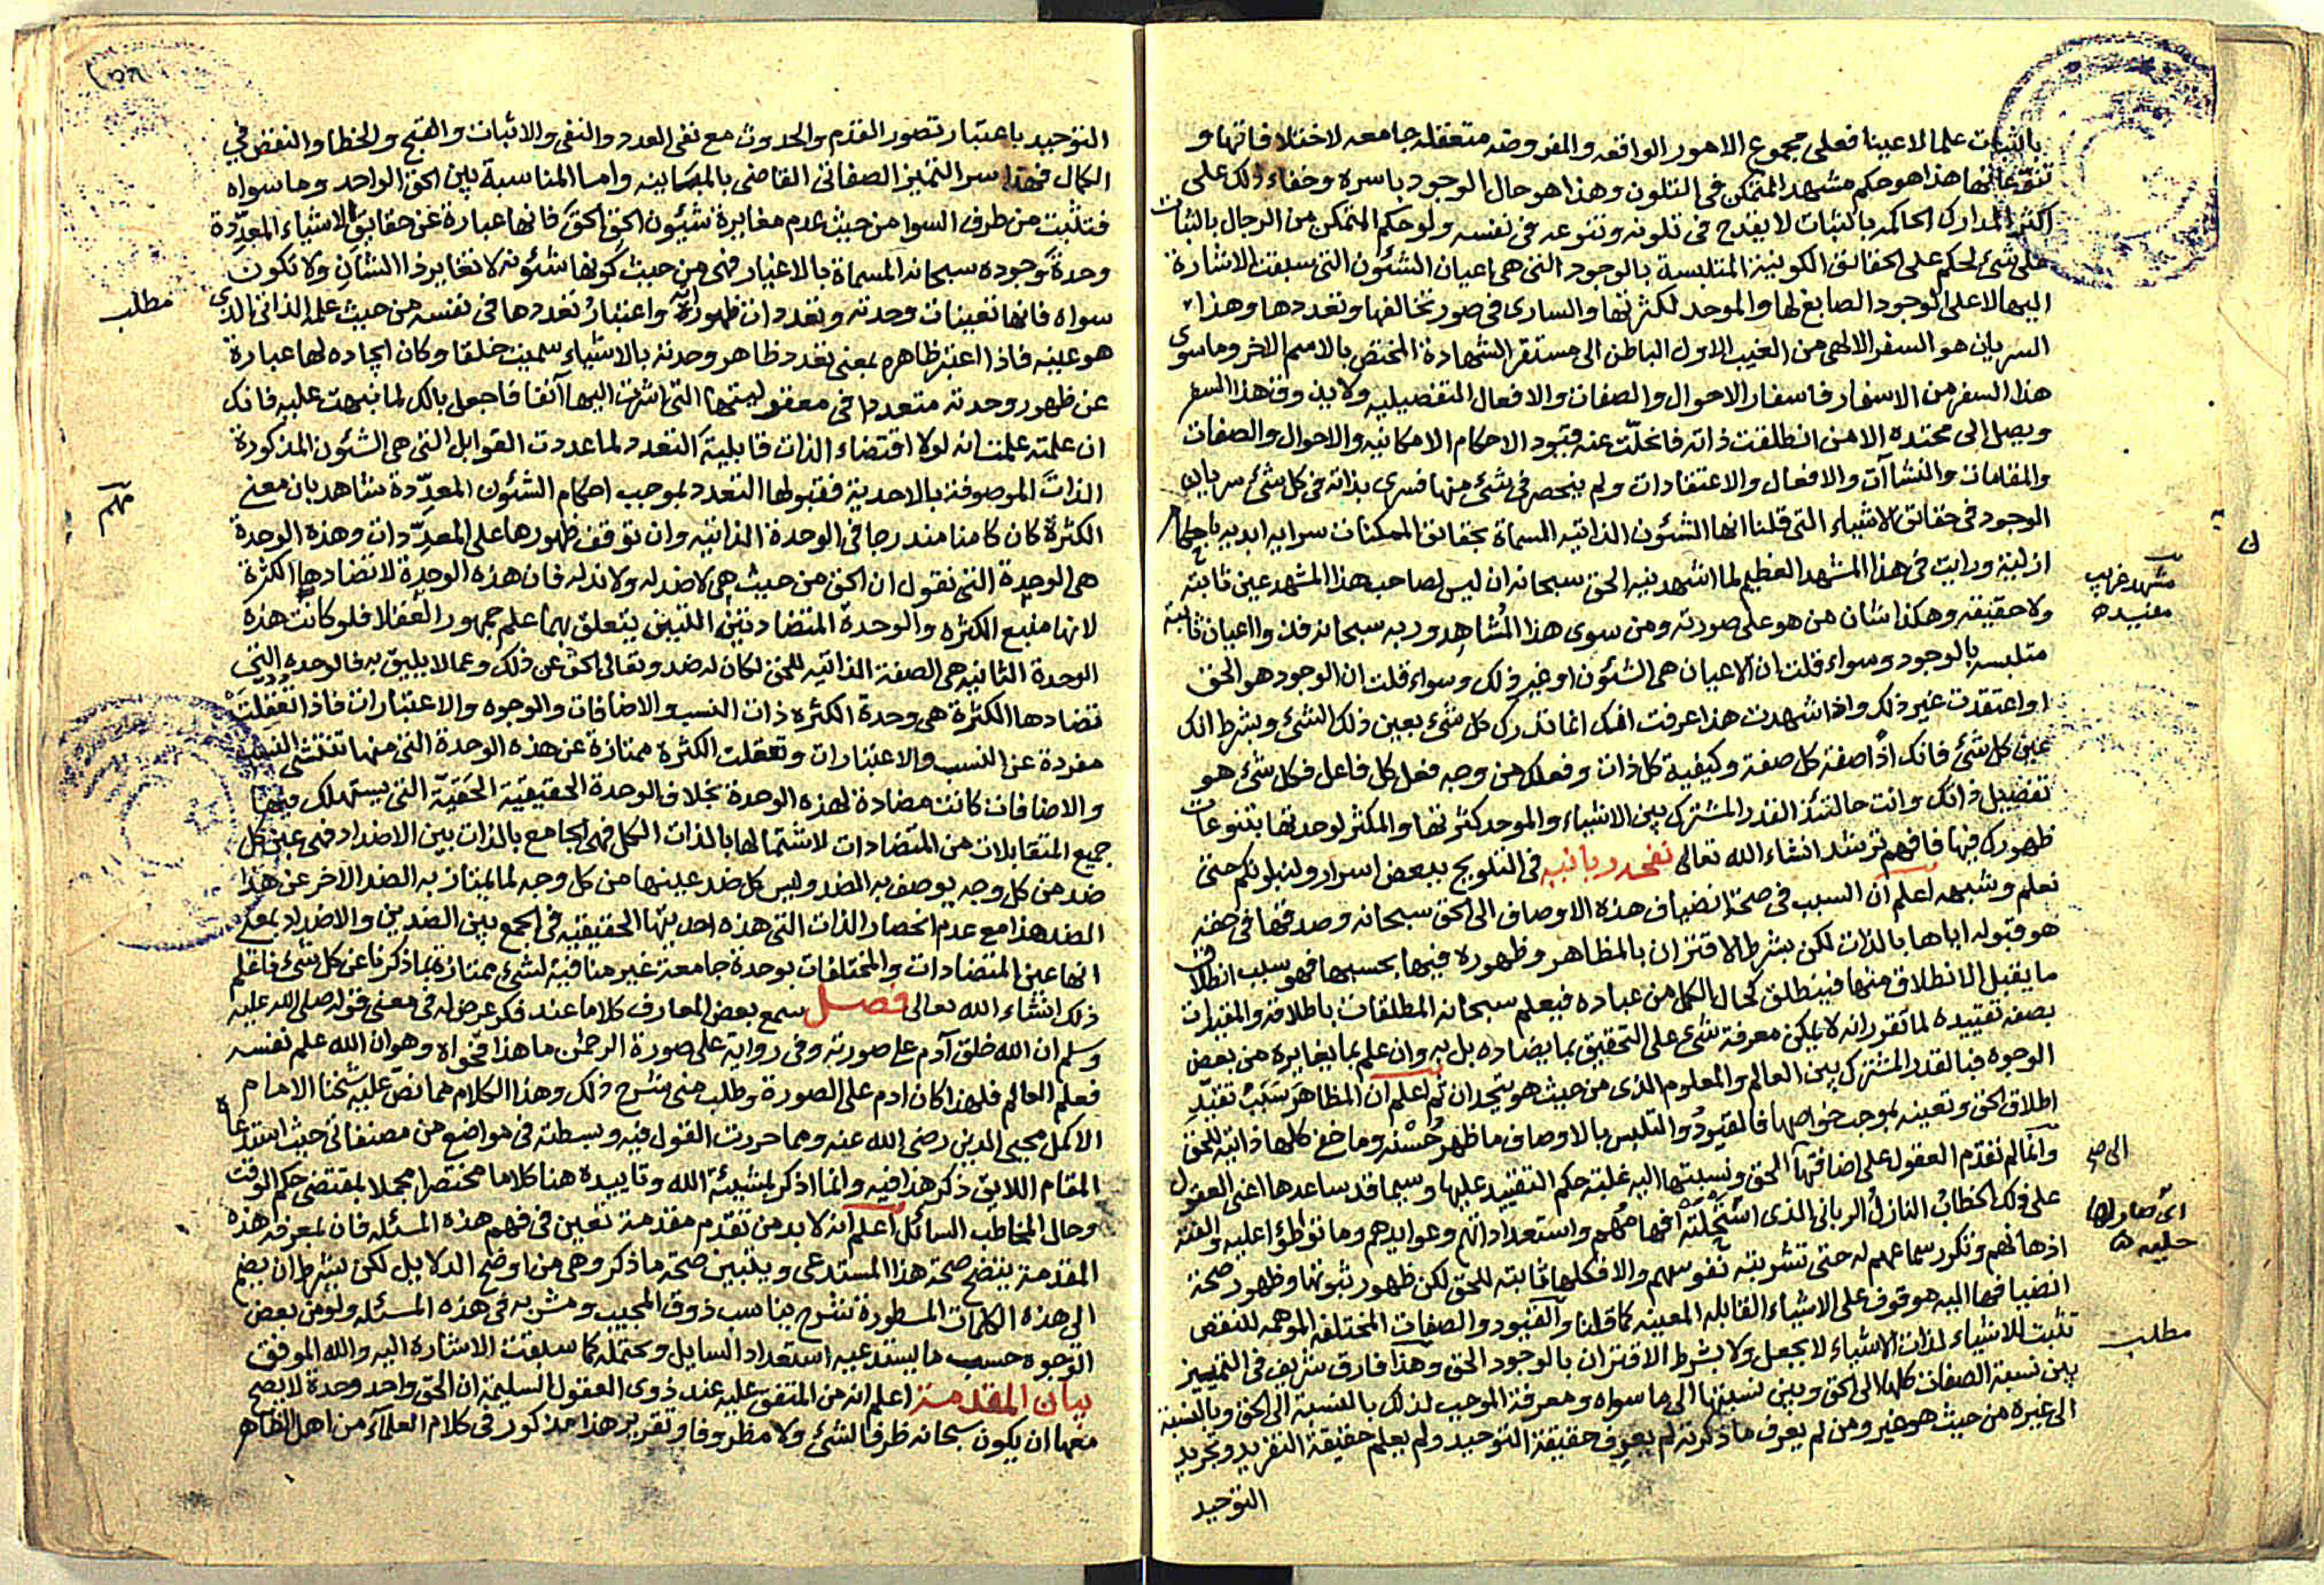 بالثبات علما لا عينا فعلى مجموع الامور الواقعه والمفروضه متعقله جامعه لاختلافاتها و
تنوعاتها هذا هو حكم مشهد المتمكن فى التلون وهذا هو حال الوجود باسره وخفاء ذلك على
اكثر المدارك الحاكمه بالثبات لا يقدح فى تلونه وتنوعه فى نفسه ولو حكم المتمكن من الرجال بالثبات
على شئ لحكم على الحقائق الكونية المتلبسة بالوجود التى هى اعيان الشئون التى سبقت الاشارة
اليها لا على الوجود الصابغ لها والموحد لكثرتها والسارى فى صور تخالفها وتعددها وهذا
السريان هو السفر الالهى من الغيب الاول الباطن الى مستقر الشهادة المختص بالاسم الاخر وما سوى
هذا السفر من الاسفار فاسفار الاحوال والصفات والافعال التفضيليه ولا يذوق هذا السفر
ويصل الى محتده الا من انطلقت ذاته فانحلّت عنه قيود الاحكام الامكانيه والاحوال والصفات
والمقامات والنشاآت والافعال والاعتقادات ولم ينحصر فى شئ منها فسرى بذاته فى كل شئ سريان
الوجود فى حقائق الاشياء التى قلنا انها الشئون الذاتيه المسماة بحقائق الممكنات سراية ابديه باحكام
ازلية ورايت فى هذا المشهد العظيم لما اشهدنيه الحق سبحانه ان ليس لصاحب هذا المشهد عين ثابته
مشهد غريب
مفيده
ولا حقيقة وهكذا شان من هو على صورته ومن سوى هذا المُشاهِد وربه سبحانه فذوا اعيان ثابتة
متلبسه بالوجود وسواء قلت ان الاعيان هى الشئون او غير ذلك وسواء قلت ان الوجود هو الحق
او اعتقدت غير ذلك واذا شهدت هذا عرفت انك انما تدرك كل شئ بعين ذلك الشئ وبشرط انك
عين كل شئ فانك اذًا صفة كل صفة وكيفية كل ذات وفعلك من وجه فعل كل فاعل فكل شئ هو
تفضيل ذاتك وانت حالتئذ القدر المشترك بين الاشياء والموحد كثرتها والمكثر لوحدتها بتنوعات
ظهورك فيها فافهم ترشد انشاء الله تعالى نفحه ربانيه فى التلويح ببعض اسرار ولنبلونكم حتى
نعلم وشبهه اعلم ان السبب فى صحة انضياف هذه الاوصاف الى الحق سبحانه وصدقها فى حقه
هو قبوله اياها بالذات لكن بشرط الاقتران بالمظاهر وظهوره فيها بحسبها فهو سبب انطلاق
ما يقبل الانطلاق منها فينطلق كحال الكمل من عباده فيعلم سبحانه المطلقات باطلاقه والمقيدات
بصفه تقييده لما تقرر انه لا يمكن معرفة شئ على التحقيق بما يضاده بل به وان علم بما يغايره من بعض
الوجوه فبالقدر المشترك بين العالم والمعلوم الذى من حيث هو يتحدان ثم اعلم ان المظاهر سَبَبُ تقيّد
اطلاق الحق وتعينه بموجب خواصها فالمقيود والتلبس بالاوصاف ما ظهر حُسْنُه وما خفى كلها ذاتية للحق
وانما لم تقدم العقول على اضافتها الى الحق ونسبتها اليه غلبة حكم التقييد عليها وسيما قد ساعدها اعنى العقول
الى صح
على ذلك الخطابُ النازلُ الربانى الذى اسْتَحْلَتْهُ افهامُهم واستعداداتهم وعوايدهم وما تواطؤا عليه والفته
اى صار لها
حليه
اذهانهم وتكرر سماعهم له حتى تشربته نفوسهم والا فكلها ثابته للحق لكن ظهور ثبوتها وظهور صحة
انضيافها اليه موقوف على الاشياء القابله المعينه كما قلنا والقيود والصفات المختلفه الموهمه للنقص
تثبت للاشياء لذات الاشياء لا بجعل ولا بشرط الاقتران بالوجود الحق وهذا فارق شريف فى التمييز
مطلب
بين نسبة الصفات كلها الى الحق وبين نسبتها الى ما سواه ومعرفة الموجب لذلك بالنسبة الى الحق وبالنسبة
الى غيره من حيث هو غير ومن لم يعرف ما ذكرته لم يعرف حقيقة التوحيد ولم يعلم حقيقة التفريد وتجريد
التوحيد
التوحيد باعتبار تصور القدم والحدوث مع نفى العدد والنفى والاثبات والقبح والخطا والنقص فى
الكمال فهذا سر التميز الصفاتى القاضى بالمباينه واما المناسبة بين الحق الواحد وما سواه
فتثبت من طرف السوا من حيث عدم مغايرة شئون الحق الحق فانها عبارة عن حقايق الاشياء المعدِّدة
وحدة وجوده سبحانه المسماة بالاغيار فهى من حيث كونها شئونه لا تغاير ذا الشان ولا تكون
سواه فانها تعينات وحدته وتعددات ظهوراته واعتبار تعددها فى نفسه من حيث علمه الذاتى الذى
مطلب
هو عينه فاذا اعتبر ظاهره بمعنى تعدد ظاهر وحدته بالاشياء سميت خلقا وكان ايجاده لها عبارة
عن ظهور وحدته متعددا فى معقوليتها التى اشرت اليها آنفا فاجعل بالك لما نبهت عليه فانك
ان علمته علمت انه لولا اقتضاء الذات قابلية التعدد لما عددت القوابل التى هى الشئون المذكورة
الذات الموصوفة بالاحدية فقبولها التعدد بموجب احكام الشئون المعدِّدة شاهد بان معنى
مهم
الكثرة كان كامنا مندرجا فى الوحدة الذاتيه وان توقف ظهورها على المعدِّدات وهذه الوحدة
هى الوحدة التى نقول ان الحق من حيث هى لا ضد له ولا ند له فان هذه الوحدة لا تضادها الكثرة
لانها منبع الكثره والوحدة المتضادتين اللتين يتعلق بهما علم جمهور العقلا فلو كانت هذه
الوحدة الثانيه هى الصفة الذاتيه للحق لكان له ضد وتعالى الحق عن ذلك وعما لا يليق به فالوحده التى
تضادها الكثرة هى وحدة الكثره ذات النسب والاضافات والوجوه والاعتبارات فاذا تعقلت
مفردة عن النسب والاعتبارات وتعقلت الكثرة ممتازة عن هذه الوحدة التى منها تنتشى النسب
والاضافات كانت مضادة لهذه الوحدة بخلاف الوحدة الحقيقية الحَقيّة التى يستهلك فيها
جميع المتقابلات من المتضادات لاشتمالها بالذات الكل فهى الجامع بالذات بين الاضداد فهى عين كل
ضد من كل وجه يوصف به الضد وليس كل ضد عينها من كل وجه لما يمتاز به الضد الآخر عن هذا
الضد هذا مع عدم انحصار الذات التى هذه احديتها الحقيقيه فى الجمع بين الضدين والاضداد بمعنى
انها عين المتضادات والمختلفات بوحدة جامعة غير منافية لشئ ممتازة بما ذكرنا عن كل شئ فاعلم
ذلك انشاء الله تعالى فصل سمع بعض المعارف كلاما عند ذكر عرض له فى معنى قوله صلى الله عليه
وسلم ان الله خلق آدم على صورته وفى رواية على صورة الرحمن ما هذا فحواه وهو ان الله علم نفسه
فعلم العالم فلهذا كان ادم على الصورة وطلب منى شرح ذلك وهذا الكلام مما نصّ عليه شيخنا الامام
الاكمل محيى الدين رضى الله عنه ومما حررت القول فيه وبسطته فى مواضع من مصنفاتى حيث استدعاه
المقام اللايق ذكر هذا فيه وانما اذكر بمشيئة الله وتاييده هنا كلاما مختصرا مجملا بمقتضى حكم الوقت
وحال المخاطب السائل اعلم انه لا بد من تقدم مقدمة تعين فى فهم هذه المسئله فان بمعرفة هذه
المقدمة يتضح صحة هذا المستدعى ويتبين صحة ما ذكر وهى من اوضح الدلايل لكن بشرط ان يضم
الى هذه الكلمات المسطورة شرح يناسب ذوق المجيب ومشربه فى هذه المسئله ولو من بعض
الوجوه حسب ما يستدعيه استعداد السايل ويحتمله كما سبقت الاشاره اليه والله الموفق
بيان المقدمة اعلم انه من المتفق عليه عند ذوى العقول السليمة ان الحق واحد وحدة لا يصح
معها ان يكون سبحانه ظرفا لشئ ولا مظروفا وتقرير هذا مذكور فى كلام العلمآء من اهل الظاهر